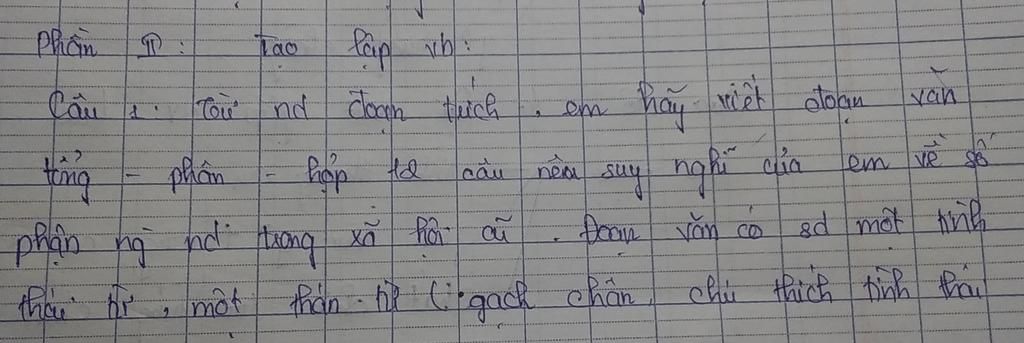 Phần II: Tạo lập vb:
Câu 1: Từ nd đoạn trích, em hãy viết đoạn văn
tổng - phân - hợp 12 câu nêu suy nghĩ của em về số
phận ng nd trong xã hội cũ. Đoạn văn có sd một tình
thái từ, một thán từ (gạch chân, chú thích tình thái